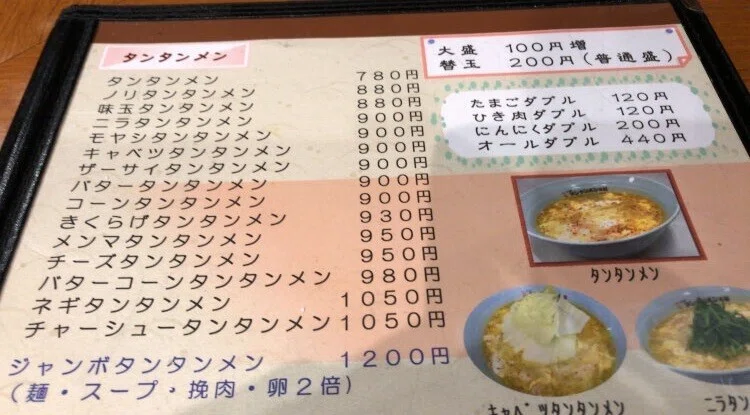 タンタンメン
タンタンメン 780円
ノリタンタンメン 880円
味玉タンタンメン 880円
ニラタンタンメン 900円
モヤシタンタンメン 900円
キャベツタンタンメン 900円
ザーサイタンタンメン 900円
バタータンタンメン 900円
コーンタンタンメン 900円
きくらげタンタンメン 930円
メンマタンタンメン 950円
チーズタンタンメン 950円
バターコーンタンタンメン 980円
ネギタンタンメン 1050円
チャーシュータンタンメン 1050円
ジャンボタンタンメン 1200円
(麺・スープ・挽肉・卵2倍)
大盛 100円増
替玉 200円(普通盛)
たまごダブル 120円
ひき肉ダブル 120円
にんにくダブル 200円
オールダブル 440円
タンタンメン
キャベツタンタンメン
ニラタン